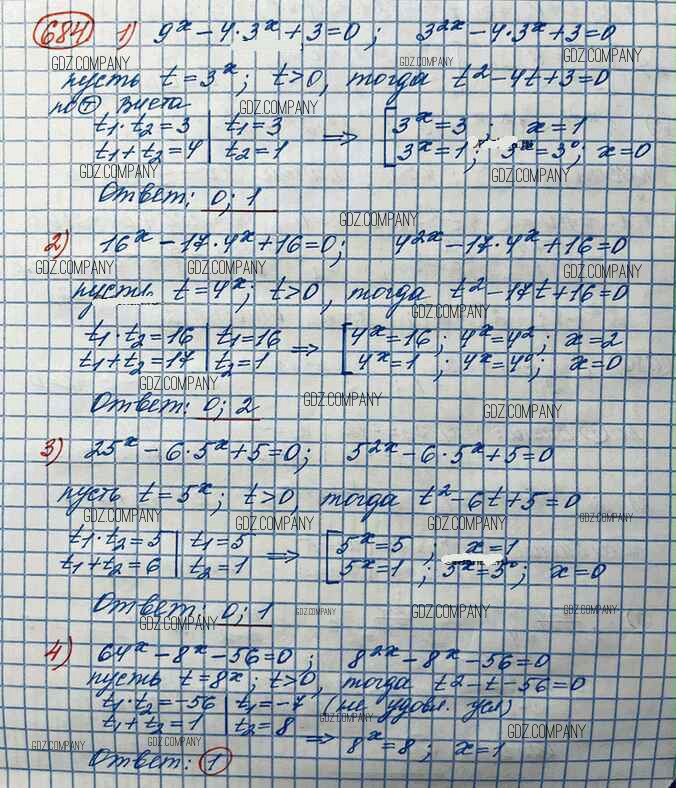 684 1) 9ˣ – 4·3ˣ + 3 = 0; 3²ˣ – 4·3ˣ + 3 = 0
GDZ.COMPANY GDZ.COMPANY GDZ.COMPANY
пусть t = 3ˣ; t > 0, тогда t² – 4t + 3 = 0
по т Виета GDZ.COMPANY
t₁·t₂ = 3 | t₁ = 3 ⇒ [ 3ˣ = 3 ; x = 1
t₁ + t₂ = 4 | t₂ = 1 3ˣ = 1 ; 3ˣ = 3⁰; x = 0
GDZ.COMPANY GDZ.COMPANY
Ответ: 0; 1
GDZ.COMPANY
2) 16ˣ – 17·4ˣ + 16 = 0; 4²ˣ – 17·4ˣ + 16 = 0
GDZ.COMPANY GDZ.COMPANY GDZ.COMPANY GDZ.COMPANY
пусть t = 4ˣ; t > 0, тогда t² – 17t + 16 = 0
GDZ.COMPANY
t₁·t₂ = 16 | t₁ = 16 ⇒ [ 4ˣ = 16 ; 4ˣ = 4² ; x = 2
t₁ + t₂ = 17 | t₂ = 1 4ˣ = 1 ; 4ˣ = 4⁰; x = 0
GDZ.COMPANY
Ответ: 0; 2 GDZ.COMPANY GDZ.COMPANY
3) 25ˣ – 6·5ˣ + 5 = 0; 5²ˣ – 6·5ˣ + 5 = 0
пусть t = 5ˣ; t > 0, тогда t² – 6t + 5 = 0
GDZ.COMPANY GDZ.COMPANY GDZ.COMPANY GDZ.COMPANY
t₁·t₂ = 5 | t₁ = 5 ⇒ [ 5ˣ = 5 ; x = 1
t₁ + t₂ = 6 | t₂ = 1 5ˣ = 1 ; 5ˣ = 5⁰; x = 0
Ответ: 0; 1 GDZ.COMPANY GDZ.COMPANY GDZ.COMPANY
GDZ.COMPANY
4) 64ˣ – 8ˣ – 56 = 0 ; 8²ˣ – 8ˣ – 56 = 0
пусть t = 8ˣ; t > 0, тогда t² – t – 56 = 0
t₁·t₂ = –56 | t₁ = –7 (не удовл. усл)
t₁ + t₂ = 1 | t₂ = 8 ⇒ 8ˣ = 8 ; x = 1
GDZ.COMPANY GDZ.COMPANY GDZ.COMPANY GDZ.COMPANY
Ответ: 1